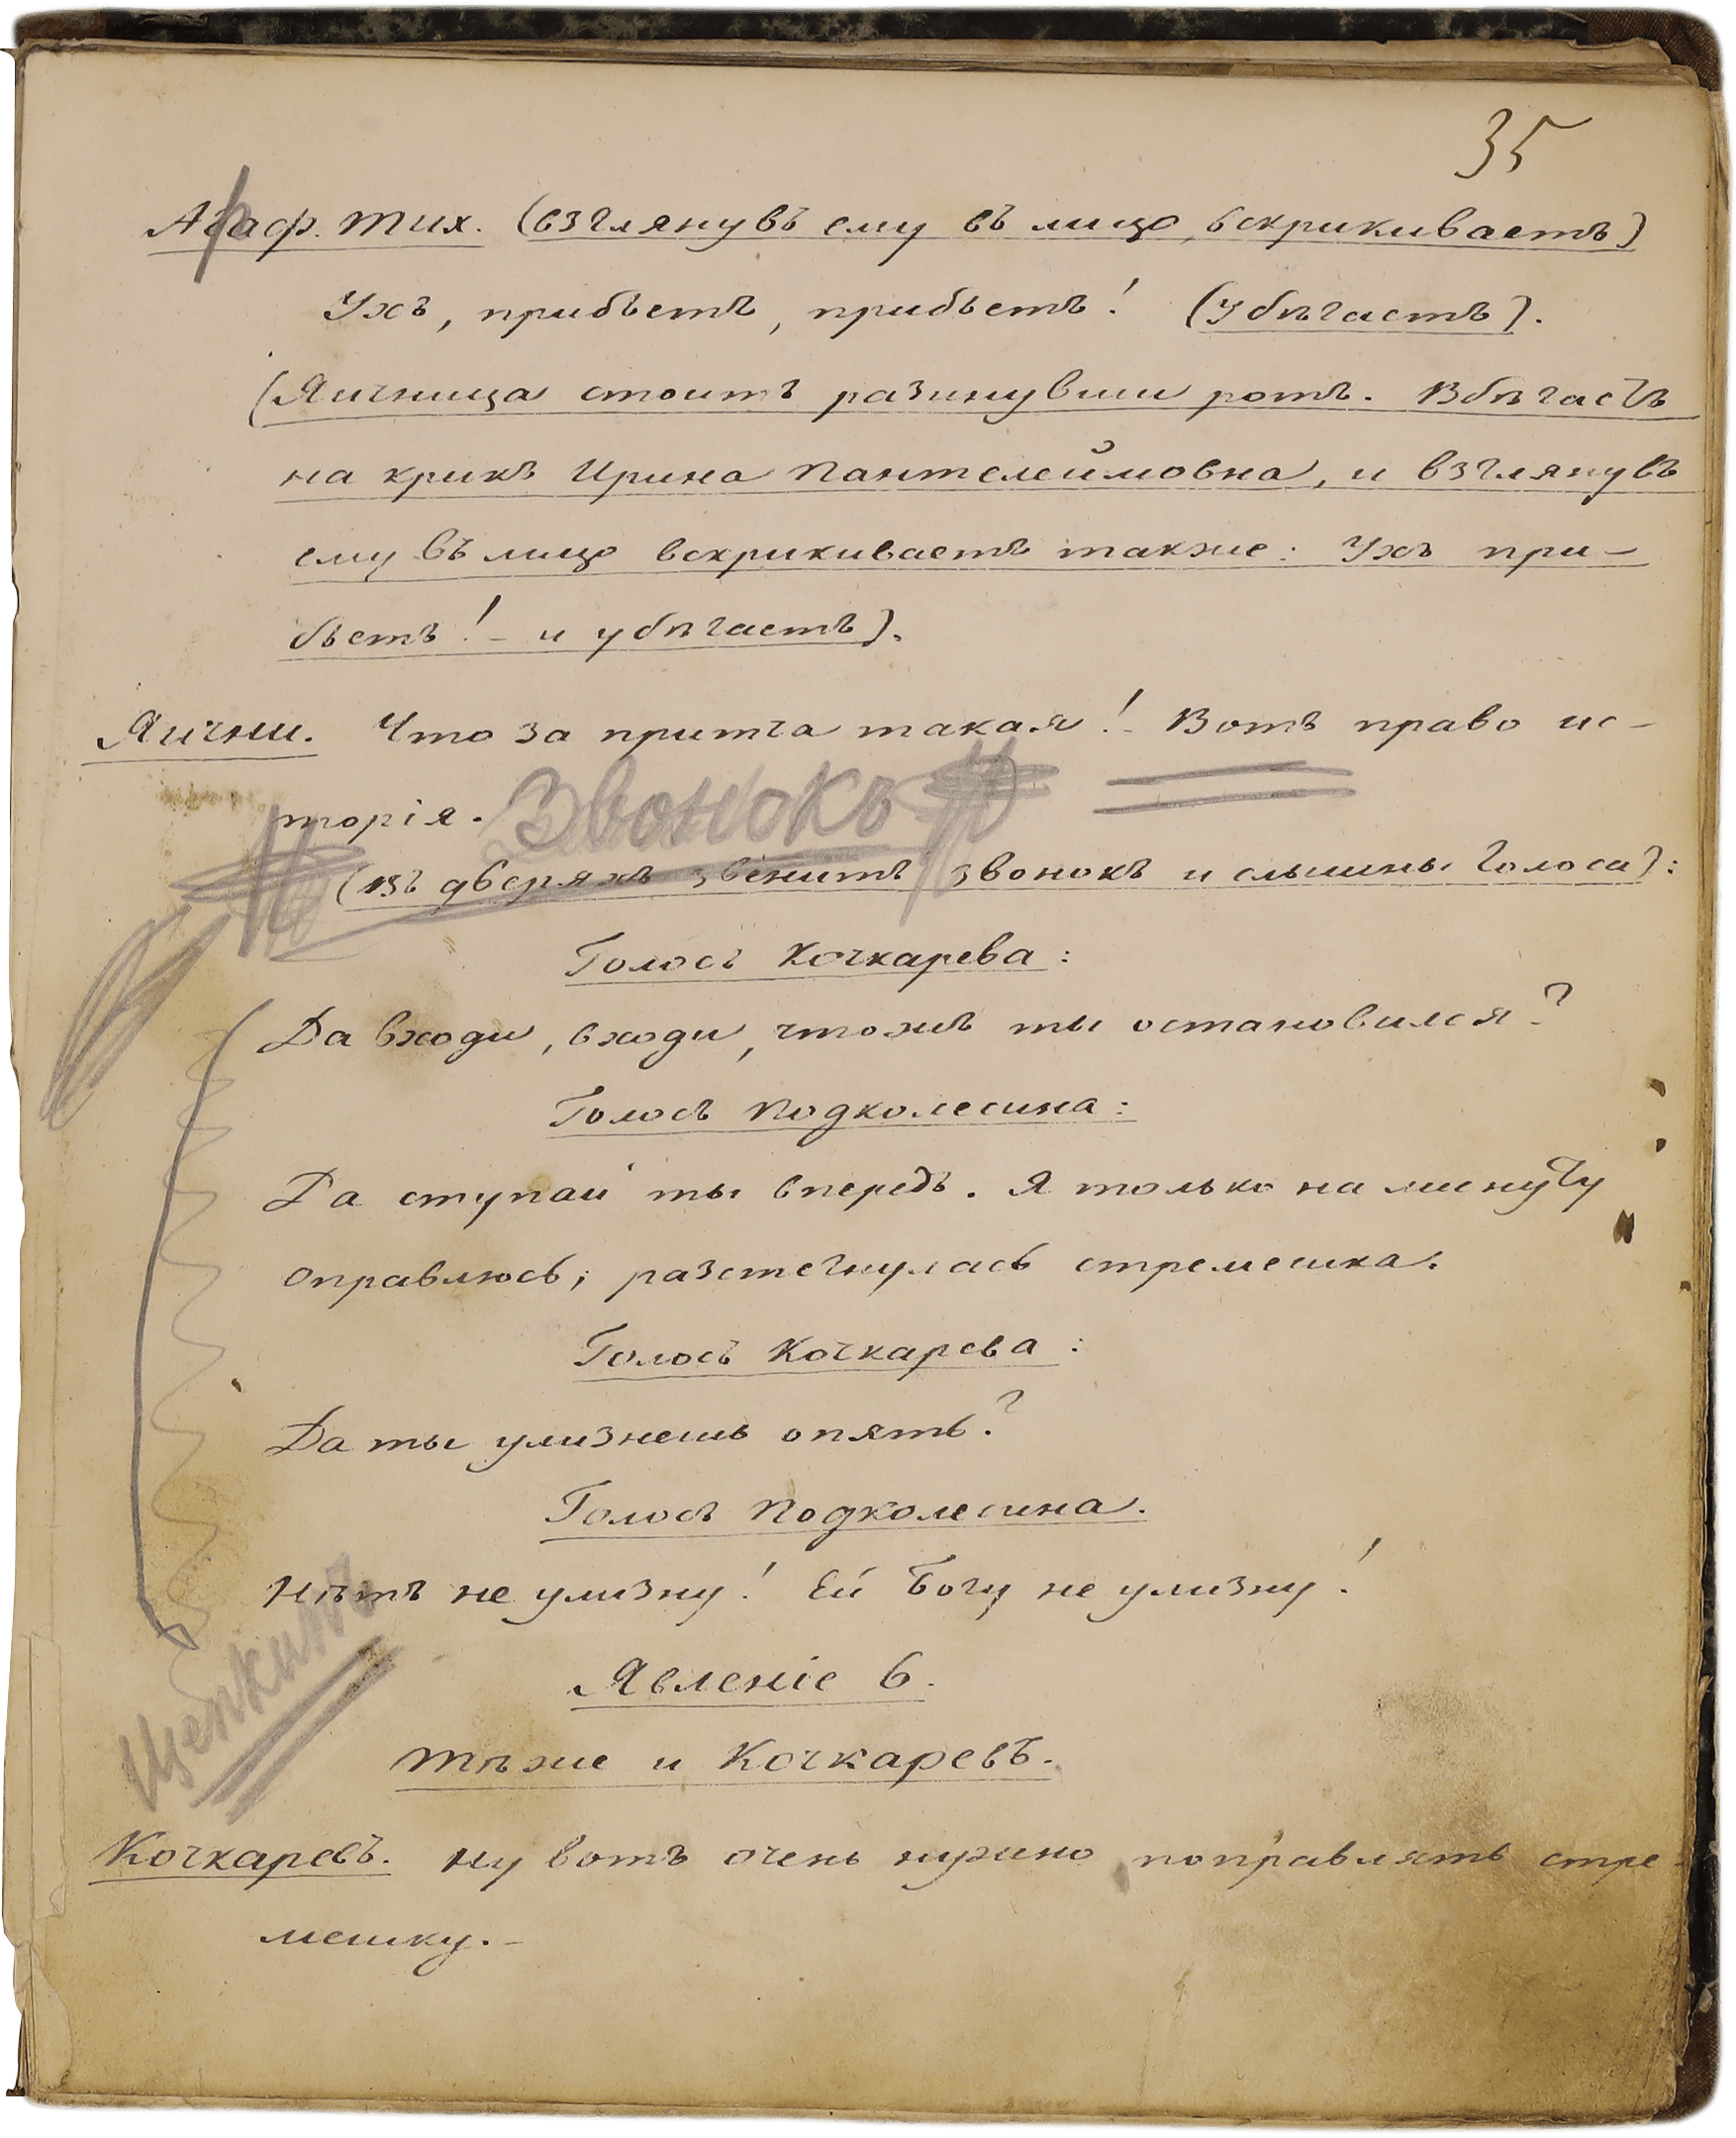 35
Агаф. Тих. (взглянувъ ему въ лицо, вскрикиваетъ)
Ухъ, прибьетъ, прибьетъ! (убѣгаетъ).
(Яичница стоитъ разинувши ротъ. Вбѣгаетъ
на крикъ Ирина Пантелеймовна, и взглянувъ
ему въ лицо вскрикиваетъ также: Ухъ при-
бьетъ! - и убѣгаетъ).
Яични. Что за притча такая! - Вотъ право ис-
торія.
Звонокъ
(въ дверяхъ звенитъ звонокъ и слышны голоса):
Голосъ Кочкарева:
Да входи, входи, чтожъ ты остановился?
Голосъ Подколесина:
Да ступай ты впередъ. Я только на минуту
оправлюсь; разстегнулась стремешка.
Голосъ Кочкарева:
Да ты улизнешь опять?
Голосъ Подколесина.
Нѣтъ не улизну! Ей Богу не улизну!
Щепкинъ
Явленіе 6.
Тѣже и Кочкаревъ.
Кочкаревъ. Ну вотъ очень нужно поправлять стре-
мешку. -